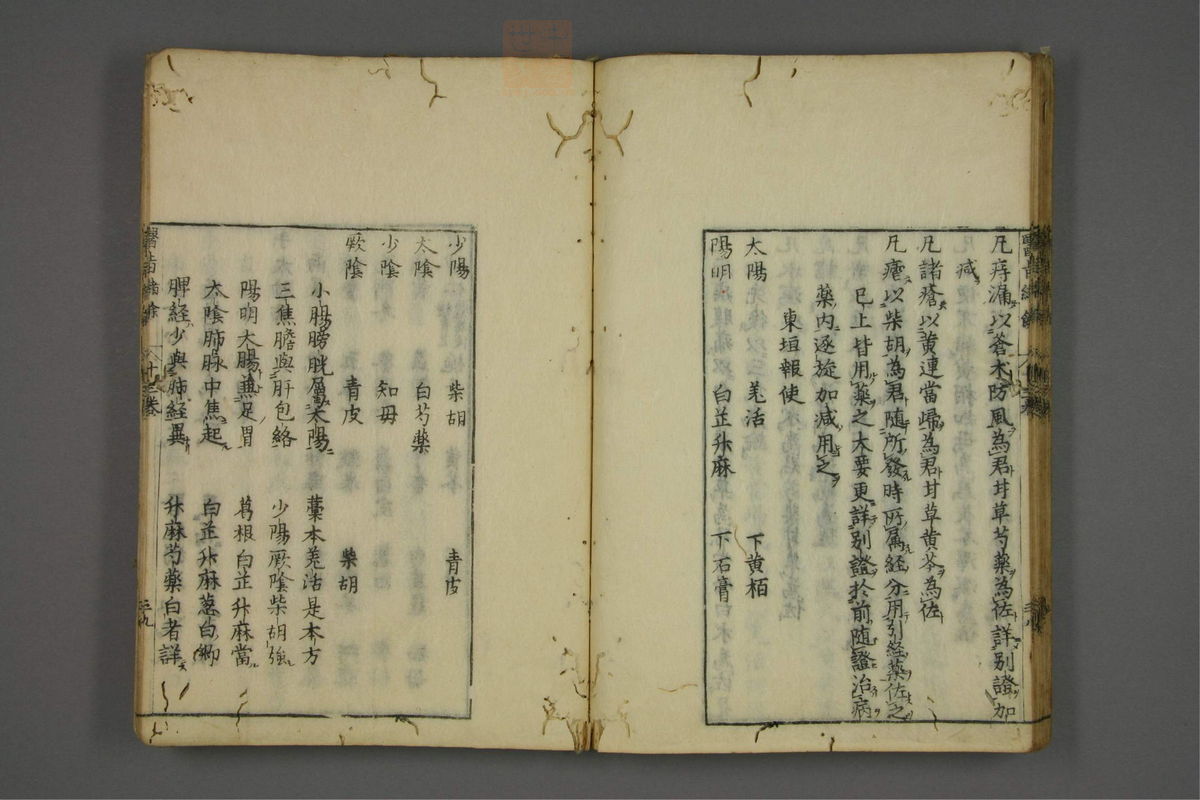 凡痔漏以蒼木防風為君甘草芍藥為佐詳別證加
減
凡諸瘡以黄連當歸為君甘草黄芩為佐
凡瘧以柴胡為君隨所發時所属経分用引経藥佐之
已上皆用藥之大要更詳別證於前随證治病
藥内逐旋加減用之
東垣報使
太陽 羌活 下黄栢
陽明 白芷升麻 下石膏
少陽 柴胡 青皮
太陰 白芍藥
少陰 知母
厥陰 青皮 柴胡
小腸膀胱屬太陽 藁本羌活是本方
三焦膽與肝包絡 少陽厥陰柴胡強
陽明大腸兼足胃 葛根白芷升麻當
太陰肺脉中焦起 白芷升麻葱白郷
脾経少與肺経異 升麻芍藥白者詳